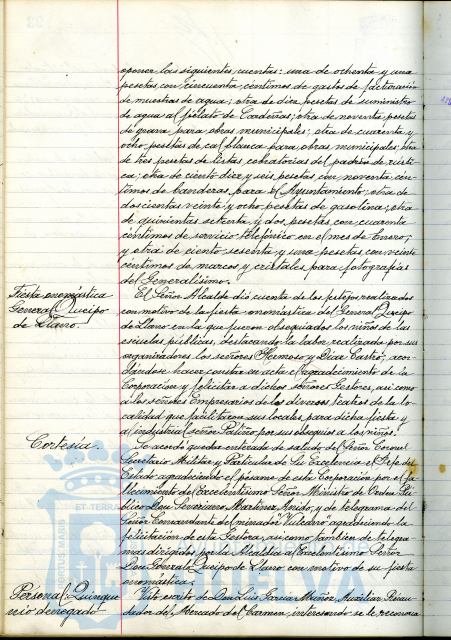 oponer las siguientes cuentas: una de ochenta y una
pesetas con cincuenta céntimos de gastos de facturación
de muestras de agua; otra de diez pesetas de suministro
de agua al fielato de Cardeñas; otra de noventa pesetas
de grava para obras municipales; otra de cuarenta y
ocho pesetas de cal blanca para obras municipales; otra
de tres pesetas de listas cobratorias del padrón de rústi-
ca; otra de ciento diez y seis pesetas con noventa cén-
timos de banderas para el Ayuntamiento; otra de
doscientas veinte y ocho pesetas de gasolina; otra
de quinientas setenta y dos pesetas con cuarenta
céntimos de servicio telefónico en el mes de Enero;
y otra de ciento sesenta y una pesetas con veinte
céntimos de marcos y cristales para fotografías
del Generalísimo.
Fiesta onomástica
General Queipo
de Llano.
El Señor Alcalde dió cuenta de los festejos realizados
con motivo de la fiesta onomástica del General Queipo
de Llano en la que fueron obsequiados los niños de las
escuelas públicas, destacando la labor realizada por sus
organizadores los señores Hermoso y Díaz Castro; acor-
dándose hacer constar en acta el agradecimiento de la
Corporación y felicitar a dichos señores Gestores, así como
a los señores Empresarios de los diversos teatros de la lo-
calidad que facilitaron sus locales para dicha fiesta y
al industrial señor por sus obsequios a los niños.
Cortesía.
Se acordó quedar enterada de saludo del Señor Coronel
Secretario Militar y Particular de Su Excelencia el Jefe del
Estado agradeciendo el pésame de esta Corporación por el fa-
llecimiento del Excelentísimo Señor Ministro de Orden Pú-
blico Don Severiano Martínez Anido; y de telegrama del
Señor Comandante del minador Vulcano agradeciendo la
felicitación de esta Gestora; así como también de telegra-
mas dirigidos por la Alcaldía al Excelentísimo Señor
Don Gonzalo Queipo de Llano con motivo de su fiesta
onomástica.
Personal: Quinque-
nio denegado
Visto escrito de Don Luis García Muñoz, Auxiliar Recau-
dador del Mercado del Carmen, interesando se le reconozca
PORTUS MARIS
ET TERRAE
HUELVA